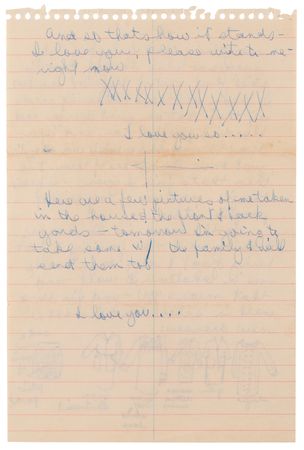 And so that's how it stands -
I love you, please write to me
right now
XXXXXXXXXXXXXX
I love you so.....
Here are a few pictures of me taken
in the house & the front & back
yards - tomorrow I'm going to
take some w/ the family & will
send them too
I love you....